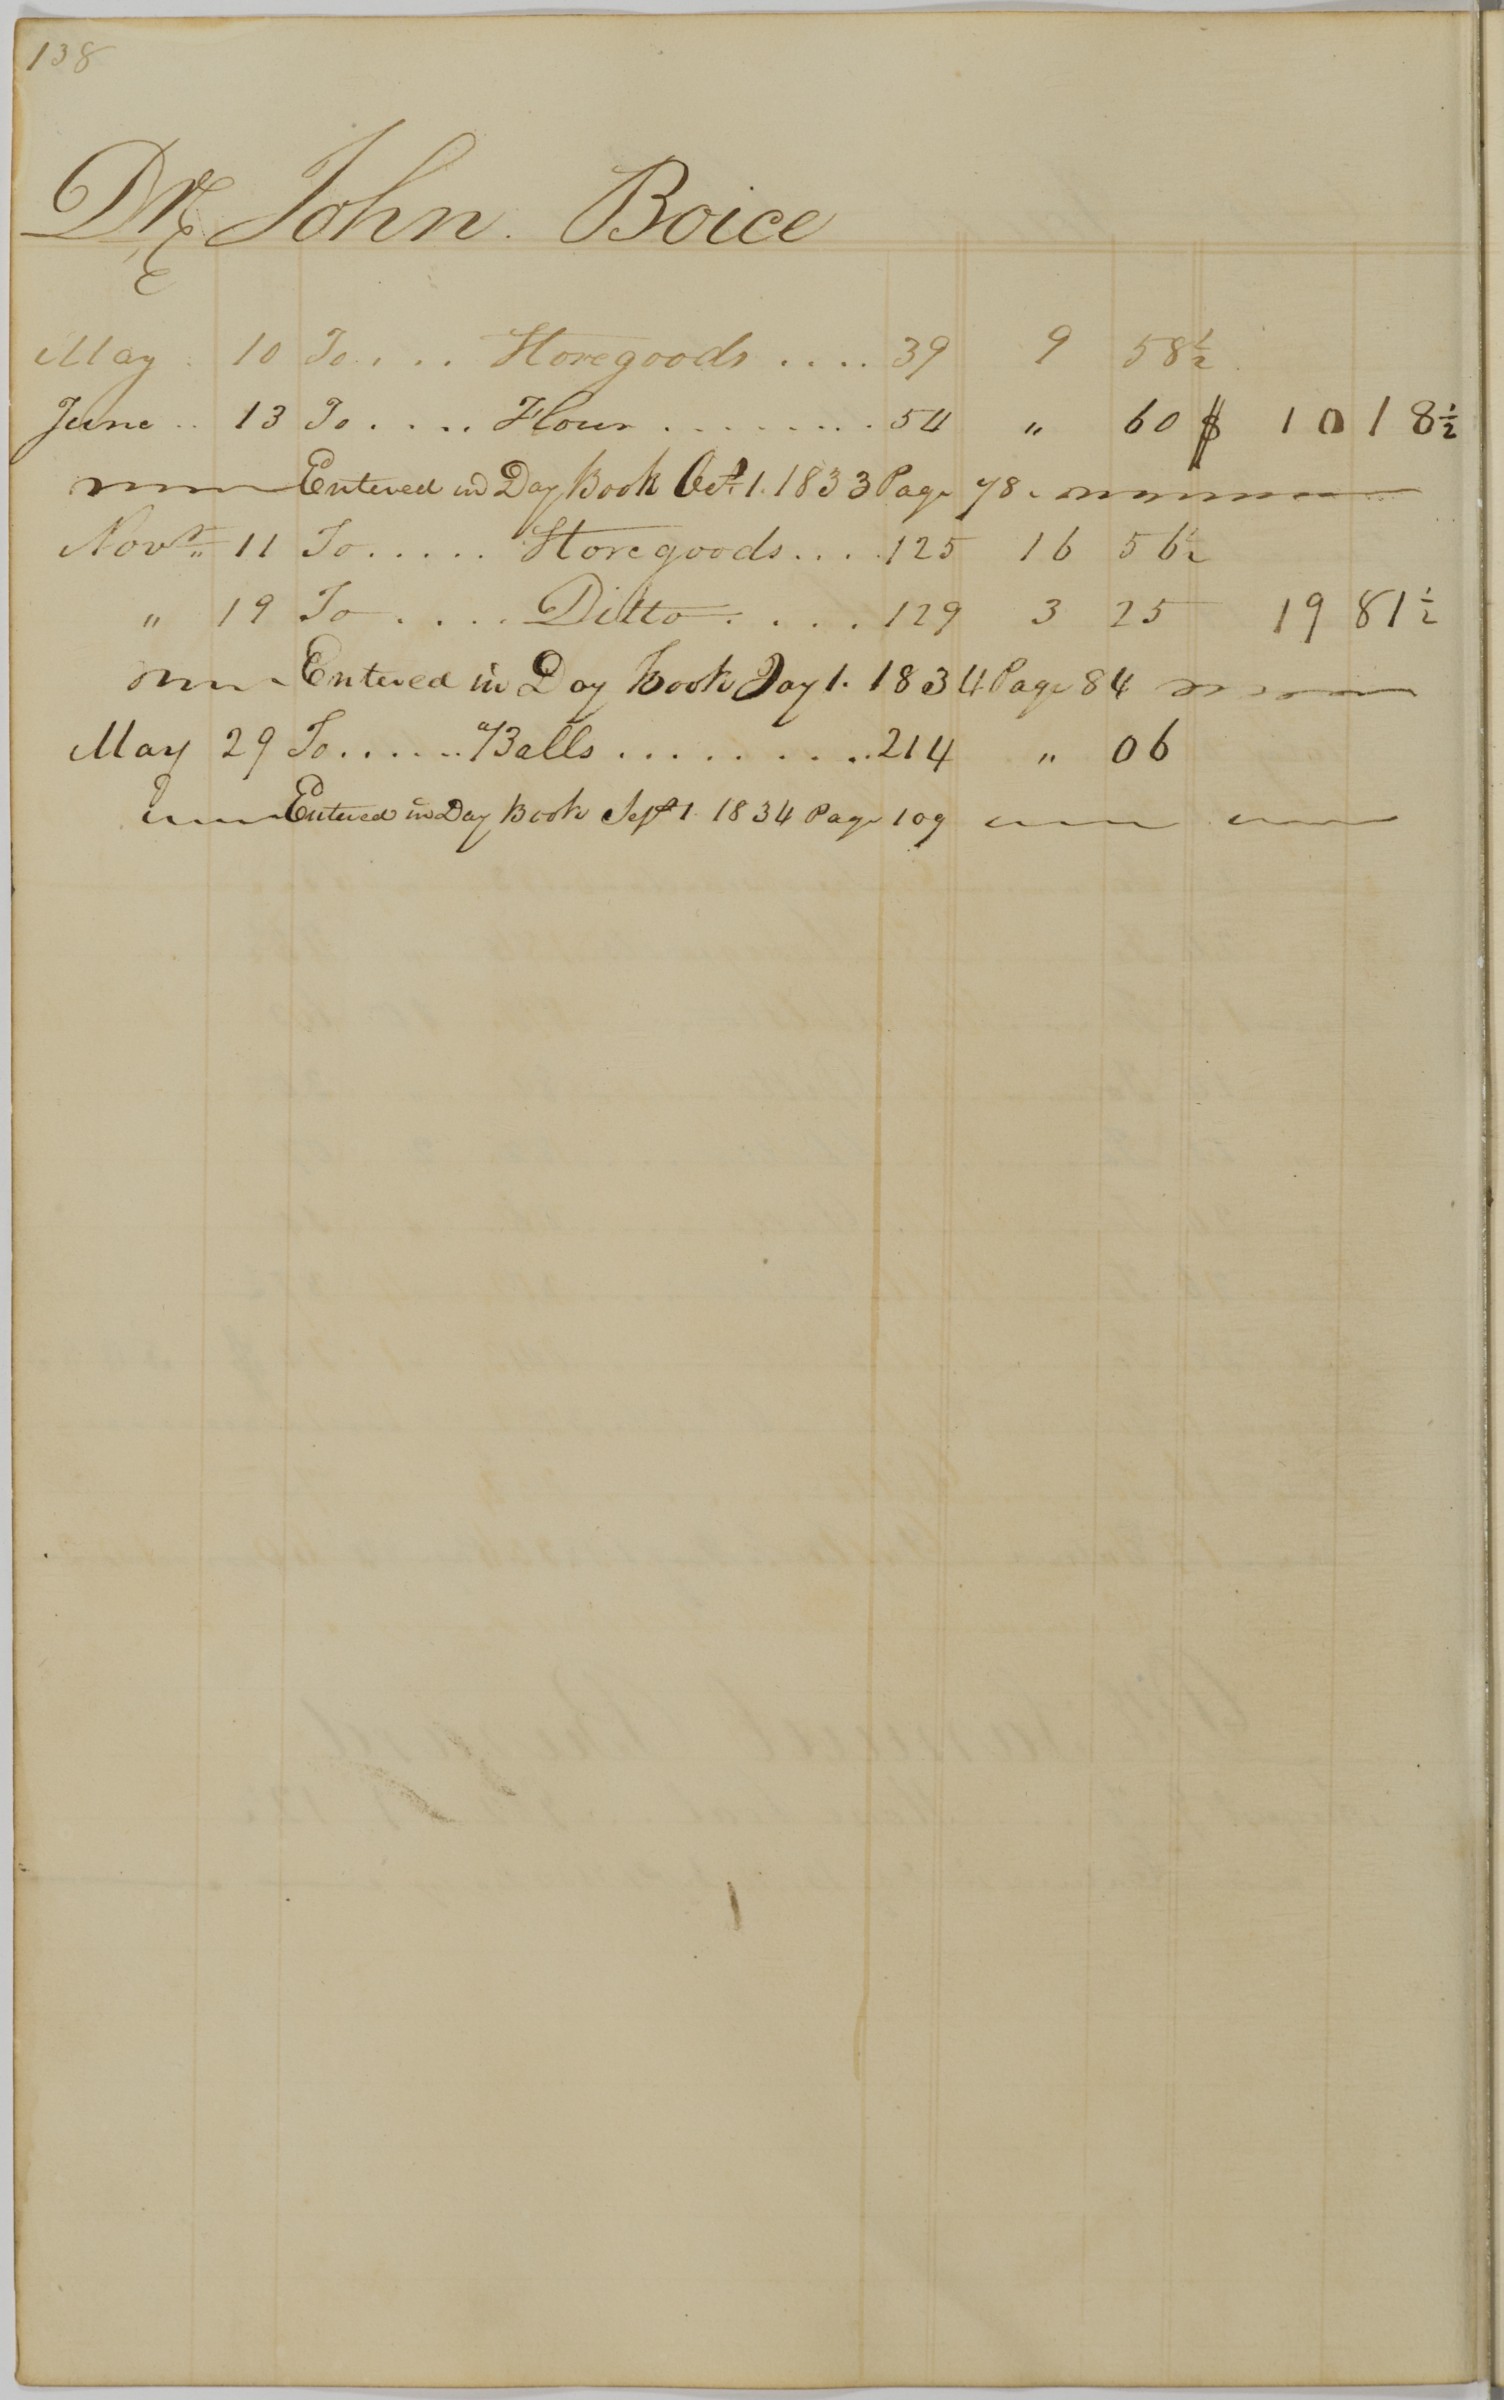 138
Dr. John. Boice
May 10 To.... Storegoods .... 39 9 58½
June .. 13 To..... Flour ......... 54 " 60 $ 10 18½
Entered in Day Book Oct. 1. 1833 Page 78
Novr. " 11 To..... Storegoods.... 125 16 56½
" 19 To.... Ditto.... 129 3 25 19 81½
Entered in Day book Jay 1. 1834 Page 84
May 29 To...... Balls ......... 214 " 06
Entered in Day Book Sept 1 1834 Page 109